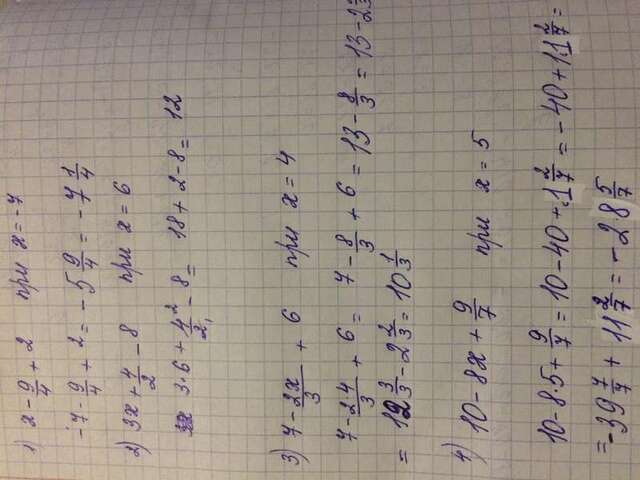 1) x - 9/4 + 2 при x = -7
-7 - 9/4 + 2 = -5 9/4 = -7 1/4
2) 3x + 4/2 - 8 при x = 6
3·6 + 4/2 - 8 = 18 + 2 - 8 = 12
3) 7 - 2x/3 + 6 при x = 4
7 - 2·4/3 + 6 = 7 - 8/3 + 6 = 13 - 8/3 = 13 - 2
= 12 3/3 - 2 2/3 = 10 1/3
4) 10 - 8x + 9/7 при x = 5
10 - 8·5 + 9/7 = 10 - 40 + 1 2/7 = -40 + 11 2/7 =
= -39 7/7 + 11 2/7 = -28 5/7